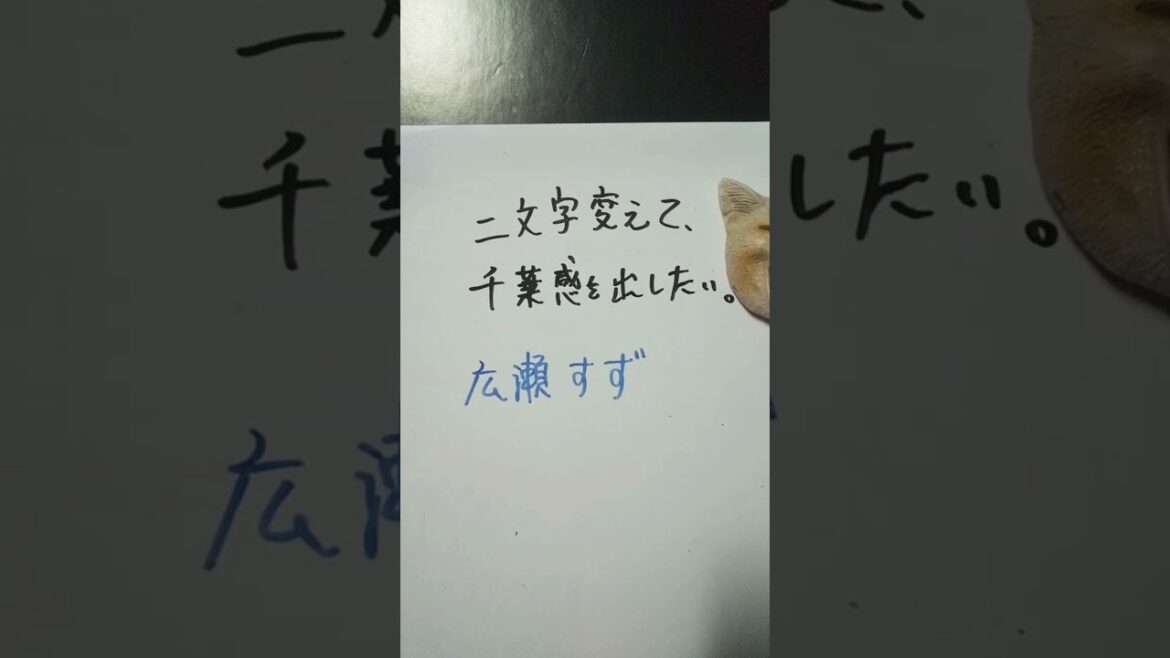 二文字変えて、
千葉感を出したい。
広瀬すず